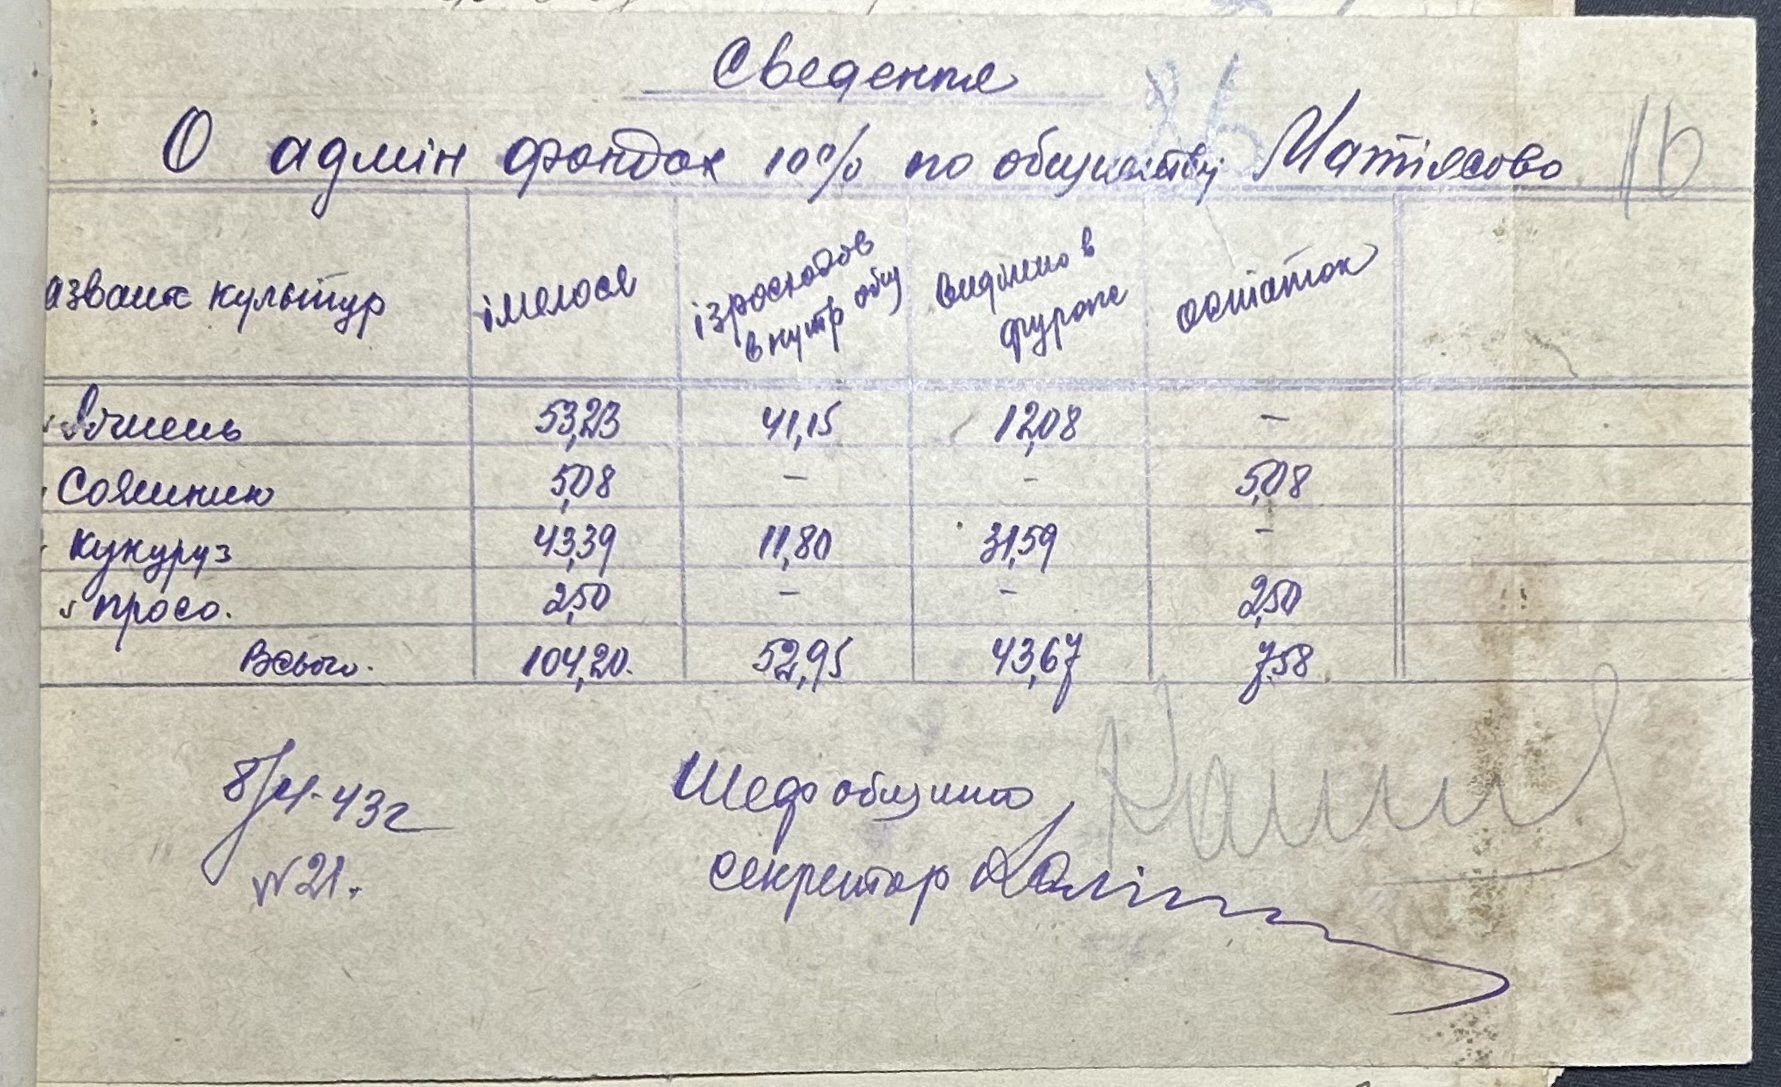 Сведения
О адмін фондах 10% по обществу Матіясово 16
26
азвание культур імелося ізросходов внутр общ виділино в фураж остаток
Ячмень 53,23 41,15 12,08 -
Сояшник 5,08 - - 5,08
Кукуруз 43,39 11,80 31,59 -
просо. 2,50 - - 2,50
Всього. 104,20. 52,95 43,67 7,58
Шеф общино
43г
№21.
секретар